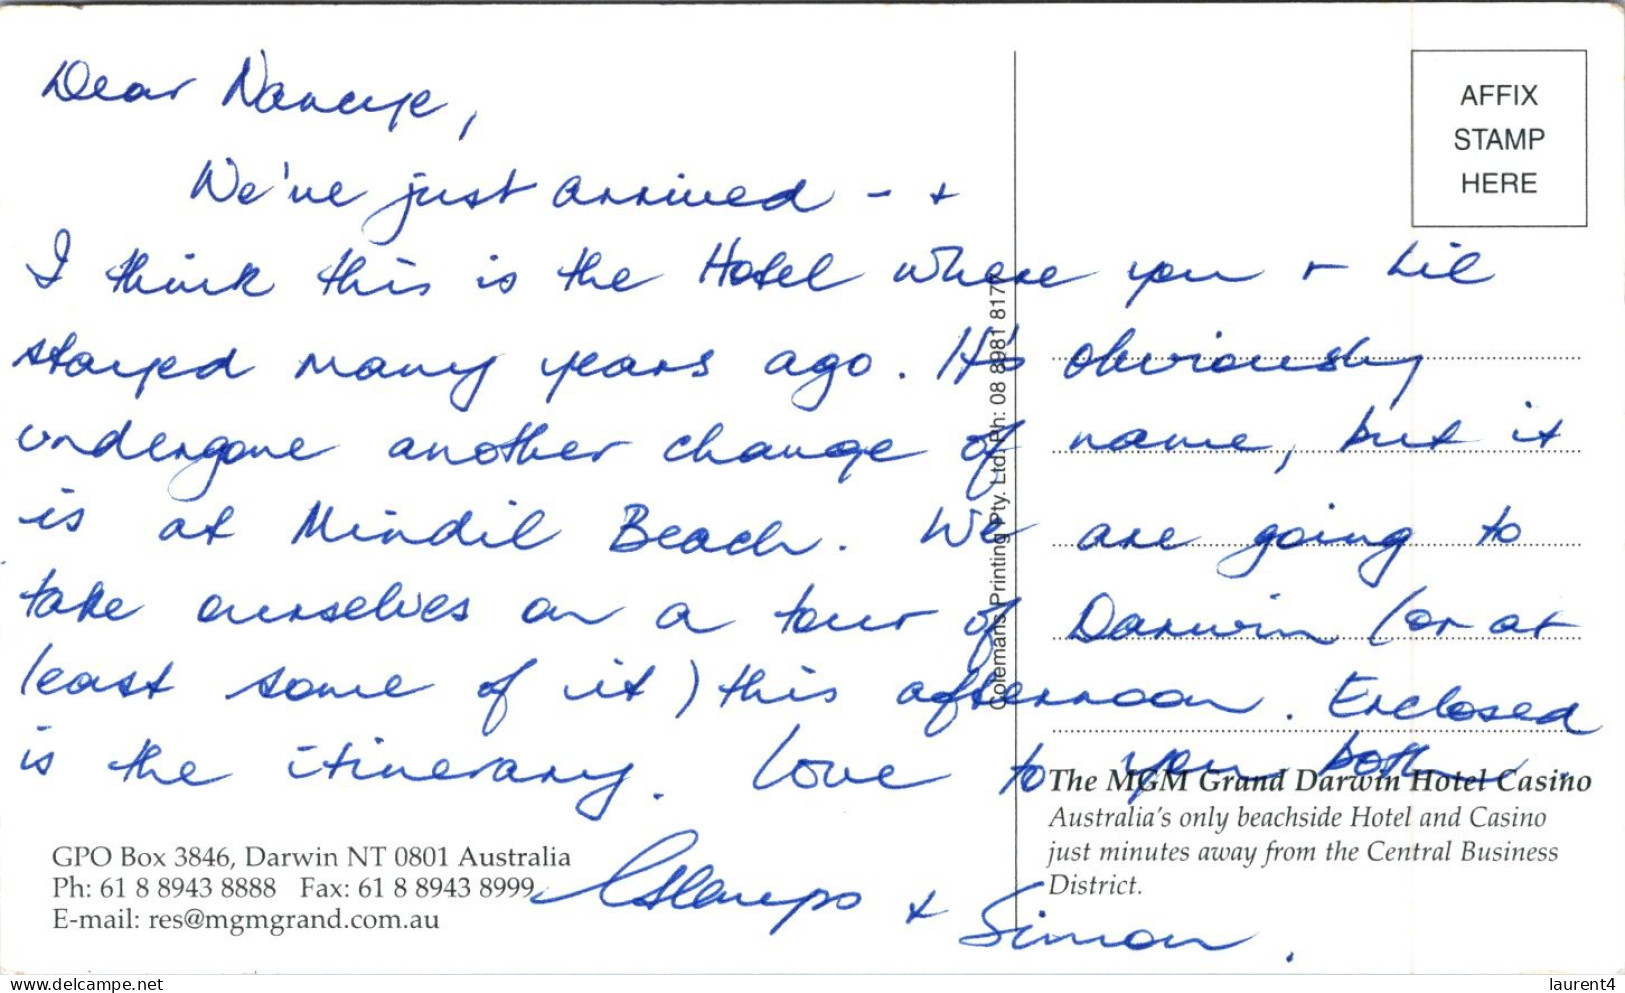 Dear Nancye,
We've just arrived - +
I think this is the Hotel where you + Lil
stayed many years ago. It's obviously
undergone another change of name, but it
is at Mindil Beach. We are going to
take ourselves on a tour of Darwin (or at
least some of it) this afternoon. Enclosed
is the itinerary. Love to you both.
+ Simon.
AFFIX
STAMP
HERE
Colemans Printing Pty. Ltd. Ph: 08 8981 8170
The MGM Grand Darwin Hotel Casino
Australia's only beachside Hotel and Casino
just minutes away from the Central Business
District.
GPO Box 3846, Darwin NT 0801 Australia
Ph: 61 8 8943 8888 Fax: 61 8 8943 8999
E-mail: res@mgmgrand.com.au
delcampe.net
laurent4